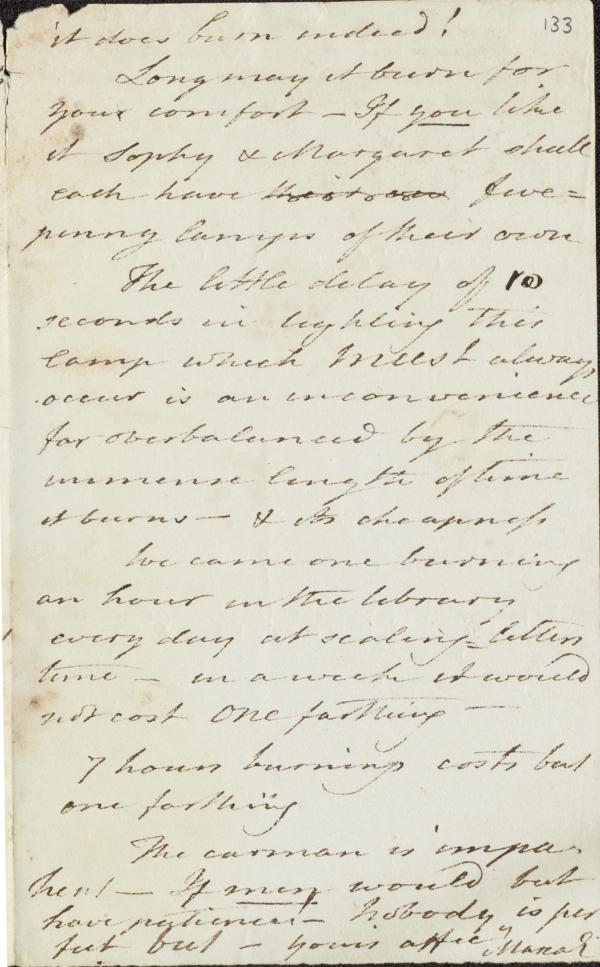 133
it does burn indeed!
Long may it burn for
your comfort – If you like
it Sophy & Margaret shall
each have five=
penny lamps of their own
The little delay of 10
seconds in lighting this
lamp which must always
occur is an inconvenience
far overbalanced by the
immense length of time
it burns – & its cheapness
We came one burning
an hour in the library
every day at sealing-letters
time – in a week it would
not cost one farthing –
7 hours burning costs but
one farthing
The carman is impa
tient – If men would but
have patience – Nobody is per
fect but – yours affec^y Maria E